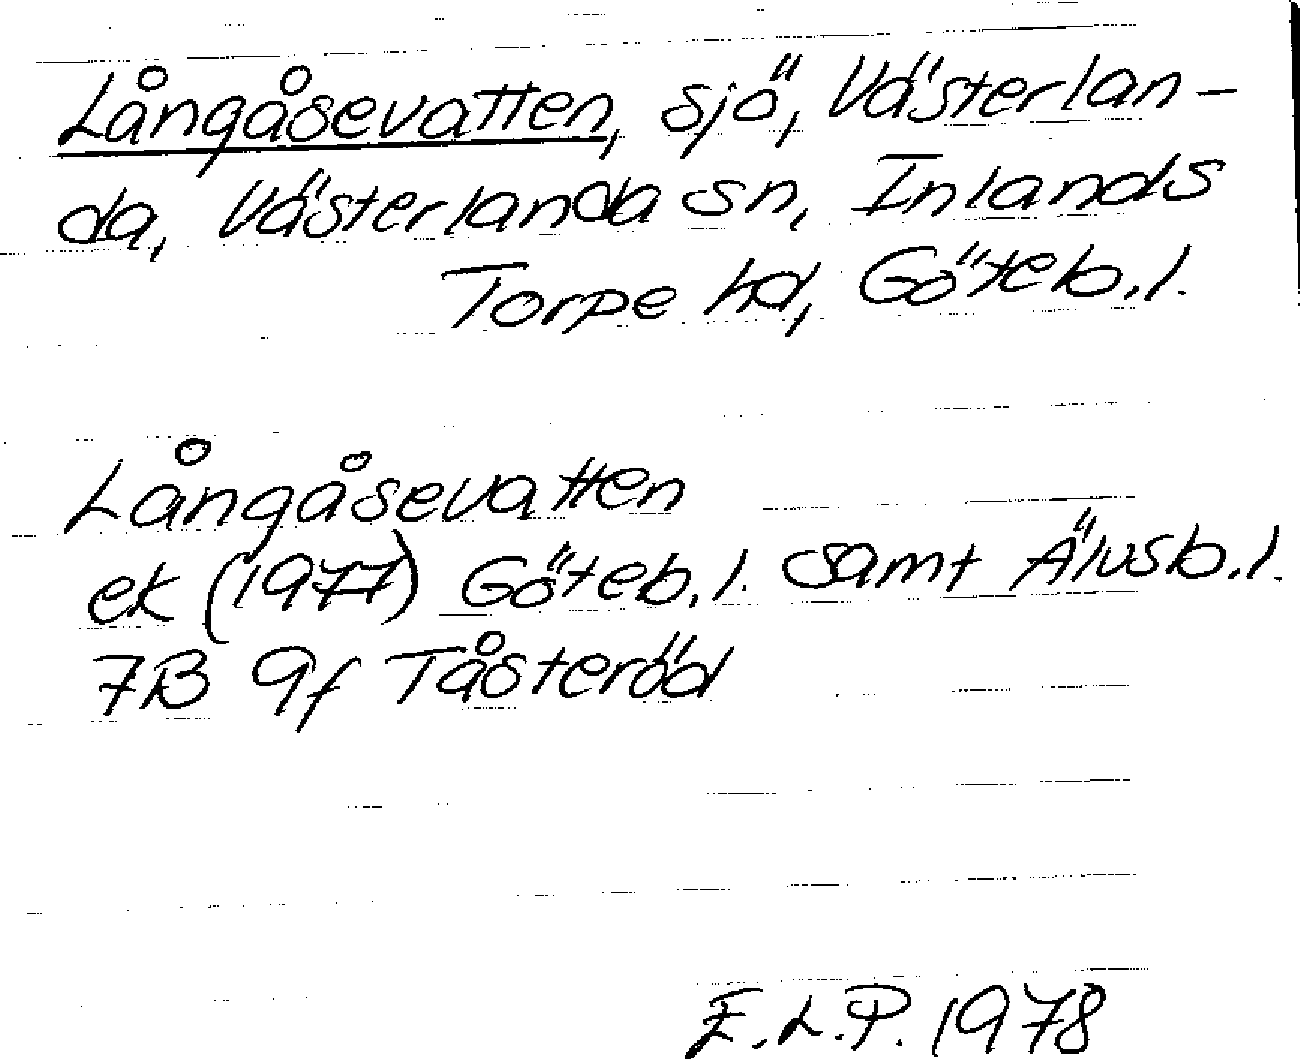 Långåsevatten, sjö, Västerlan-
da, Västerlanda sn, Inlands
Torpe hd, Göteb.l.
Långåsevatten
ek (1977) Göteb.l. samt Älvsb.l.
7B 9f Tåsteröd
E.L.P. 1978